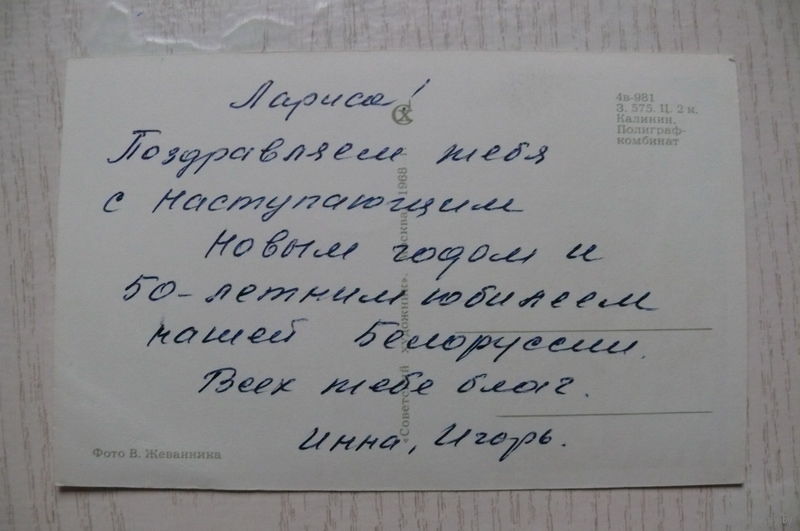 Лариса!
Поздравляем тебя
с наступающим
новым годом и
50-летним юбилеем
нашей Белоруссии.
Всех тебе благ.
Инна, Игорь.
4в-981
З. 575. Ц. 2 к.
Калинин.
Полиграф-
комбинат
Фото В. Жеванника
«Советский художник». Москва 1968